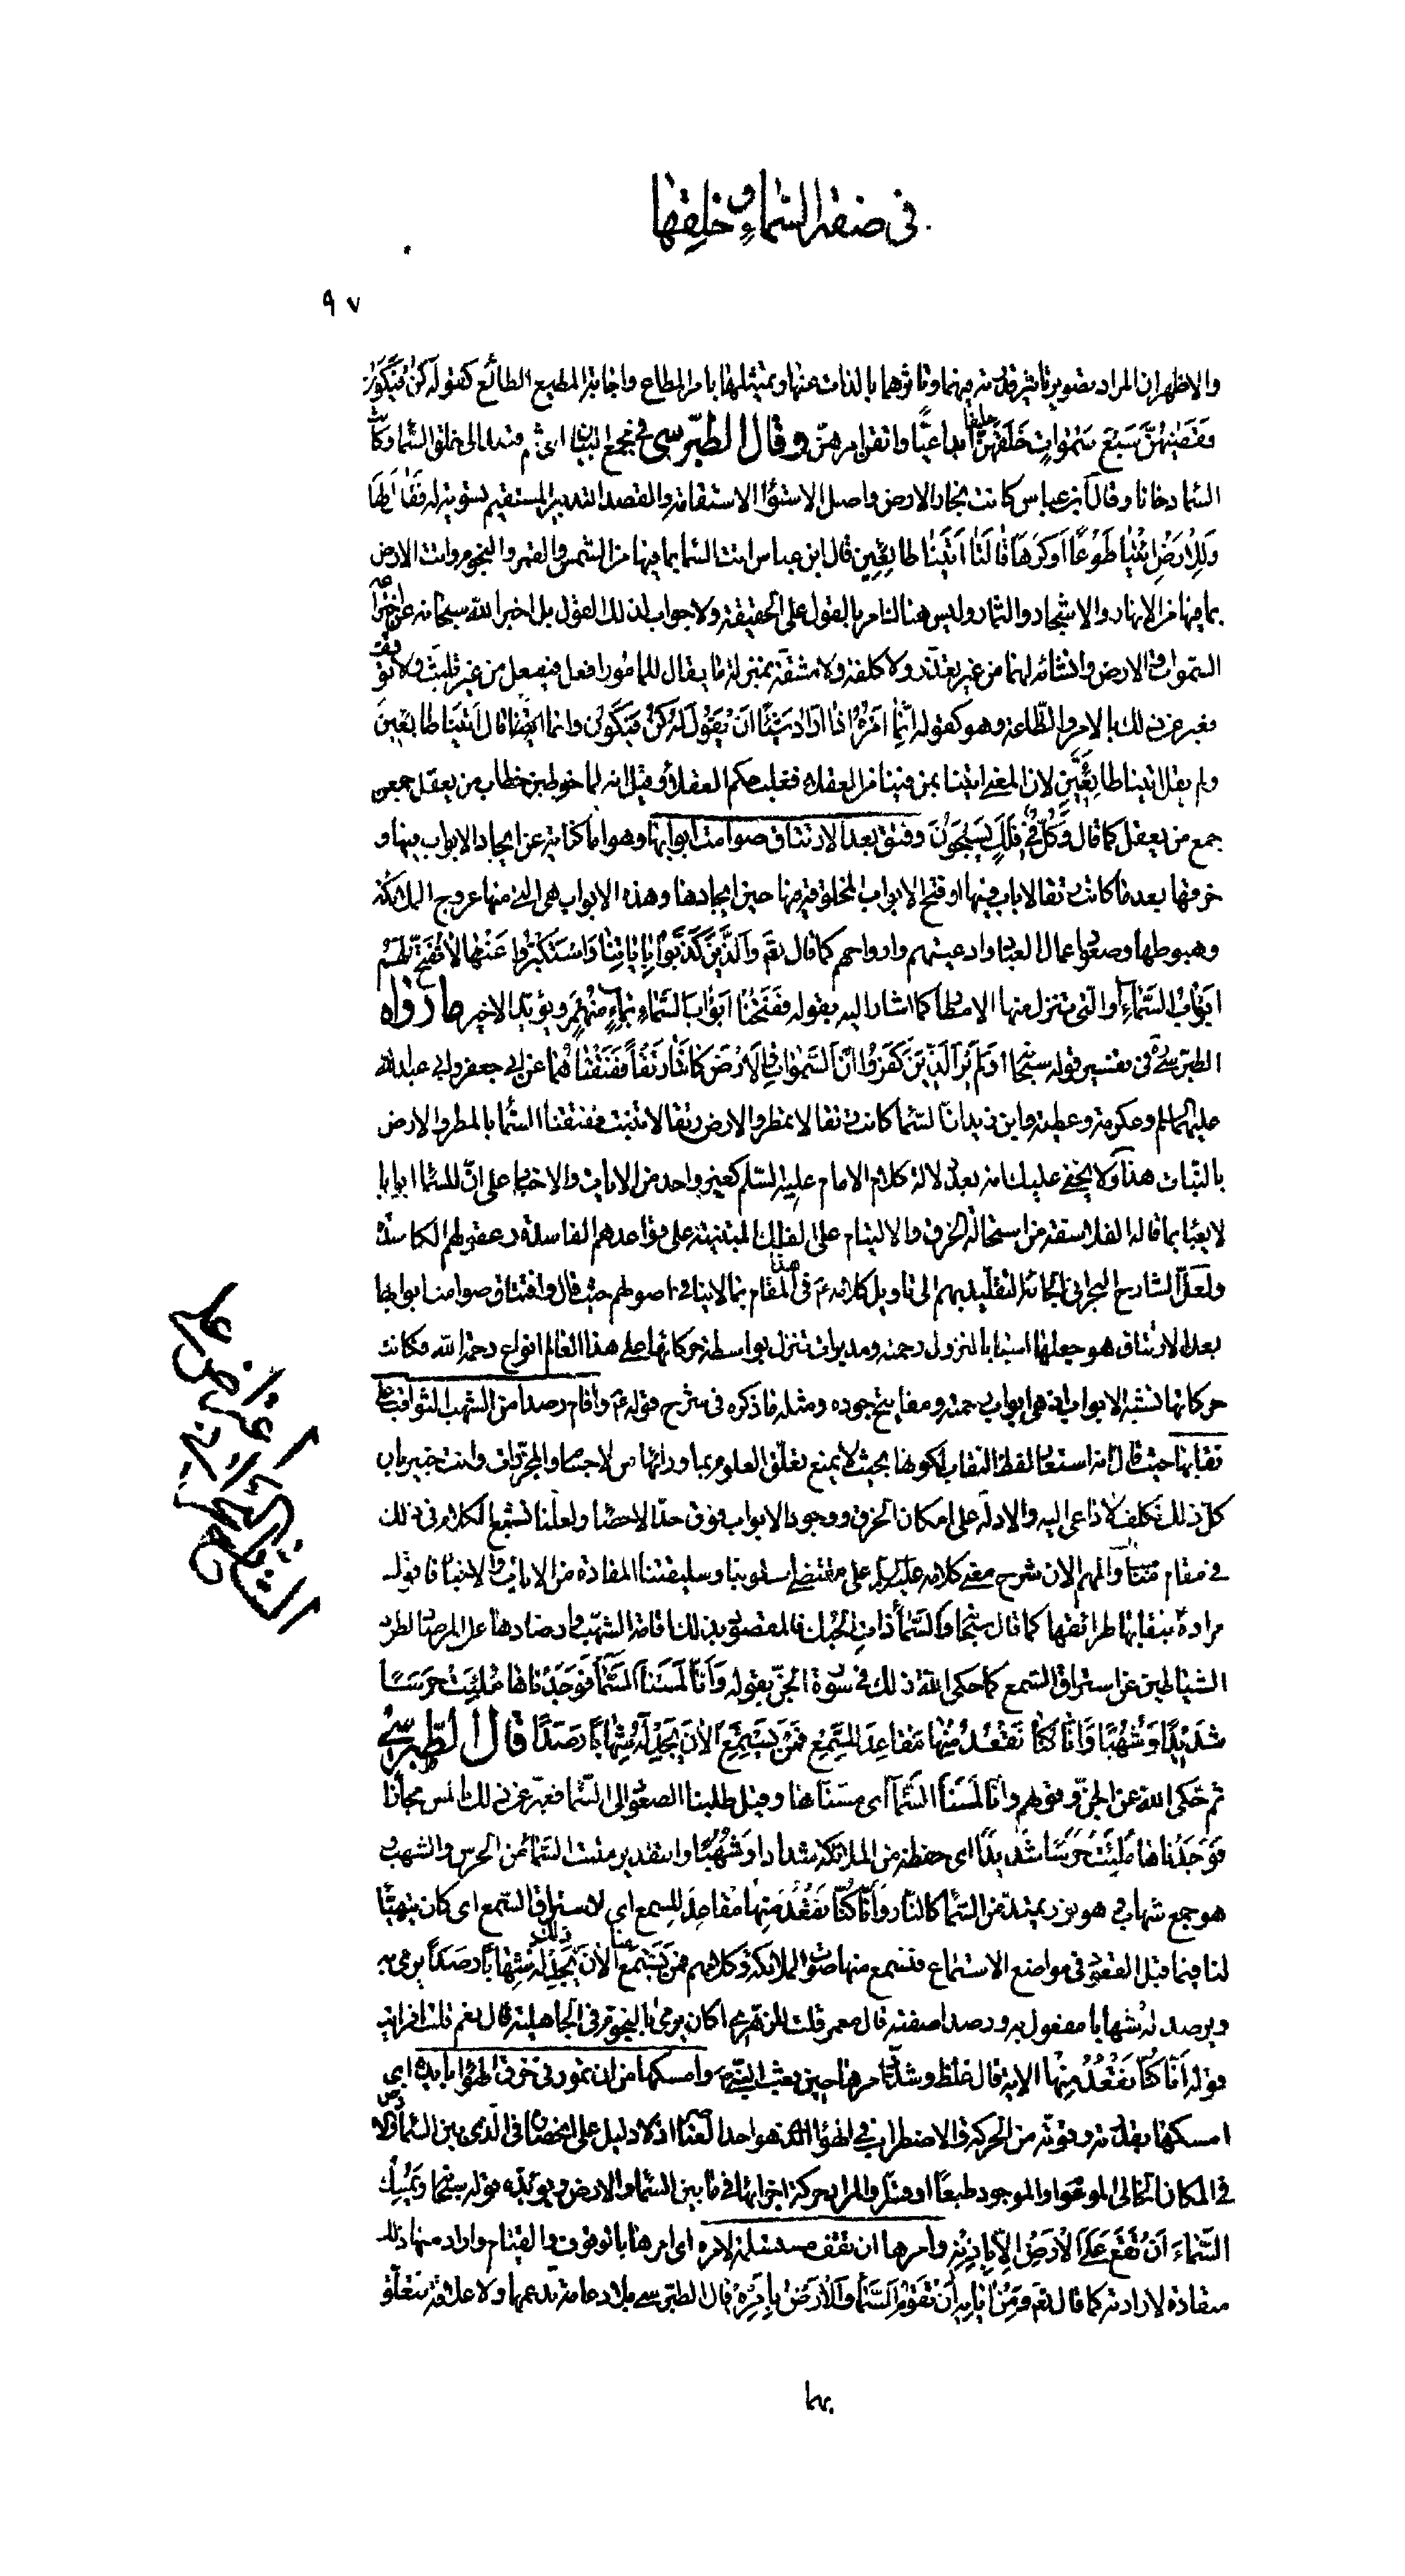 في صفة السماء و خلقها
٩٧
والاظهر ان المراد تصوير تاثير قدرته فيهما وتاثرهما بالذات عنها وتمثيلها بامر المطاع واجابة المطيع الطائع كقوله كن فيكون
فقضيهن سبع سموات خلقهن خلقا ابداعيا واتقن امرهن وقال الطبرسي في مجمع البيان اي ثم قصد الى خلق السما وكانت
السما دخانا وقال ابن عباس كانت بخار الارض واصل الاستوا الاستقامة والقصد التدبير المستقيم تسوية له فقال لها
وللارض ائتيا طوعا او كرها قالتا اتينا طائعين قال ابن عباس اتت السما بما فيها من الشمس والقمر والنجوم واتت الارض
بما فيها من الانهار والاشجار والثمار وليس هنالك امر بالقول على الحقيقة ولا جواب لذلك القول بل اخبر الله سبحانه عن اختراعه
السموات والارض وانشائه لهما من غير تعذر ولا كلفة ولا مشقة بمنزلة ما يقال للمامور افعل فيفعل من غير تلبث ولا توقف
فعبر عن ذلك بالامر والطاعة وهو كقوله انما امره اذا اراد شيئا ان يقول له كن فيكون وانما قال اتينا طائعين
ولم يقل اتينا طائعتين لان المعنى اتينا بمن فينا من العقلاء فغلب حكم العقلاء وقيل انه لما خوطبن خطاب من يعقل جمعن
جمع من يعقل كما قال وكل في فلك يسبحون وفتق بعد الارتتاق صوامت ابوابها وهو اما كناية عن ايجاد الابواب فيها و
خرقها بعد ما كانت رتقا لا باب فيها او فتح الابواب المخلوقة فيها حين ايجادها وهذه الابواب هي التي منها عروج الملائكة
وهبوطها وصعود اعمال العباد وادعيتهم وارواحهم كما قال تعم والذين كذبوا باياتنا واستكبروا عنها لا تفتح لهم
ابواب السماء والتي تنزل منها الامطار كما اشار اليه بقوله ففتحنا ابواب السماء بماء منهمر ويؤيد الاخير ما رواه
الطبرسي في تفسير قوله سبحا اولم ير الذين كفروا ان السموات والارض كانتا رتقا ففتقناهما عن ابي جعفر وابي عبد الله
عليهما السلم وعكرمة وعطية وابن زيد ان السما كانت رتقا لا تمطر والارض رتقا لا تنبت ففتقنا السما بالمطر والارض
بالنبات هذا ولا يخفى عليك انه بعد دلالة كلام الامام عليه السلم كغير واحد من الايات والاخبار على ان للسما ابوابا
لا يعبا بما قاله الفلاسفة من استحالة الخرق والالتيام على الفلك المبتنية على قواعدهم الفاسدة وعقولهم الكاسدة
ولعل الشارح البحراني الجاه التقليد بهم الى تاويل كلامه ع في هذا المقام بما لا ينافي اصولهم حيث قال وافتتاق صوامت ابوابها
بعد الارتتاق هو جعلها اسبابا لنزول رحمته ومدبرات تنزل بواسطة حركاتها على هذا العالم انواع رحمة الله فكانت
حركاتها تشبه الابواب اذ هي ابواب رحمته ومفاتيح جوده ومثله ما ذكره في شرح قوله ع واقام رصدا من الشهب الثواقب على
نقابها حيث قال انه استعار لفظ النقاب لكونها بحيث لا يمنع تعلق العلوم بما ورائها من الاجسام والمجردات وانت خبير بان
كل ذلك تكلف لا داعي اليه والادلة على امكان الخرق ووجود الابواب فوق حد الاحصا ولعلنا نشبع الكلام في ذلك
في مقام والمهم الان شرح معنى كلامه عليه السلم على مقتضى اسلوبنا وسليقتنا المفادة من الايات والاخبار فاقول
مراده بنقابها طرائقها كما قال سبحا والسماء ذات الحبك فالمقصود بذلك اقامة الشهب وارصادها على المرصاد لطرد
الشياطين عن استراق السمع كما حكى الله ذلك في سورة الجن بقوله وانا لمسنا السماء فوجدناها ملئت حرسا
شديدا وشهبا وانا كنا نقعد منها مقاعد للسمع فمن يستمع الان يجد له شهابا رصدا قال الطبرسي
ثم حكى الله عن الجن وقولهم وانا لمسنا السماء اي مسسناها وقيل طلبنا الصعود الى السما فعبر عن ذلك باللمس مجازا
فوجدناها ملئت حرسا شديدا اي حفظة من الملائكة شدادا وشهبا والتقدير ملئت السماء من الحرس والشهب
هو جمع شهاب وهو نور يمتد من السما كالنار وانا كنا نقعد منها مقاعد للسمع اي لاستراق السمع اي كان يتهيا
لنا فيما قبل القعود في مواضع الاستماع فنسمع منها صوت الملائكة وكلامهم فمن يستمع منا الان ذلك يجد له شهابا رصدا يرمى به
ويرصد له شهابا مفعول به ورصدا صفته قال معمر قلت للزهري اكان يرمى بالنجوم في الجاهلية قال نعم قلت افرايت
قوله انا كنا نقعد منها الاية قال غلظ وشدد امرها حين بعث النبي ص وامسكها من ان تمور في خرق الهواء بايده اي
امسكها بقدرته وقوته من الحركة والاضطراب في الهواء الذي هو احد العناصر اذ لا دليل على انحصاره في الذي بين السماء والارض
في المكان الخالي الموهوم او الموجود طبعا او قسرا والمراد حركة اجزائها في ما بين السما والارض ويؤيده قوله سبحا ويمسك
السماء ان تقع على الارض الا باذنه وامرها ان تقف مستسلمة لامره اي امرها بالوقوف والقيام واراد منها ذلك
منقادة لارادته كما قال تعم ومن اياته ان تقوم السماء والارض بامره قال الطبرسي بلا دعامة تدعمها ولا علاقة تتعلق
بها
اعتراض على
الشارح البحراني